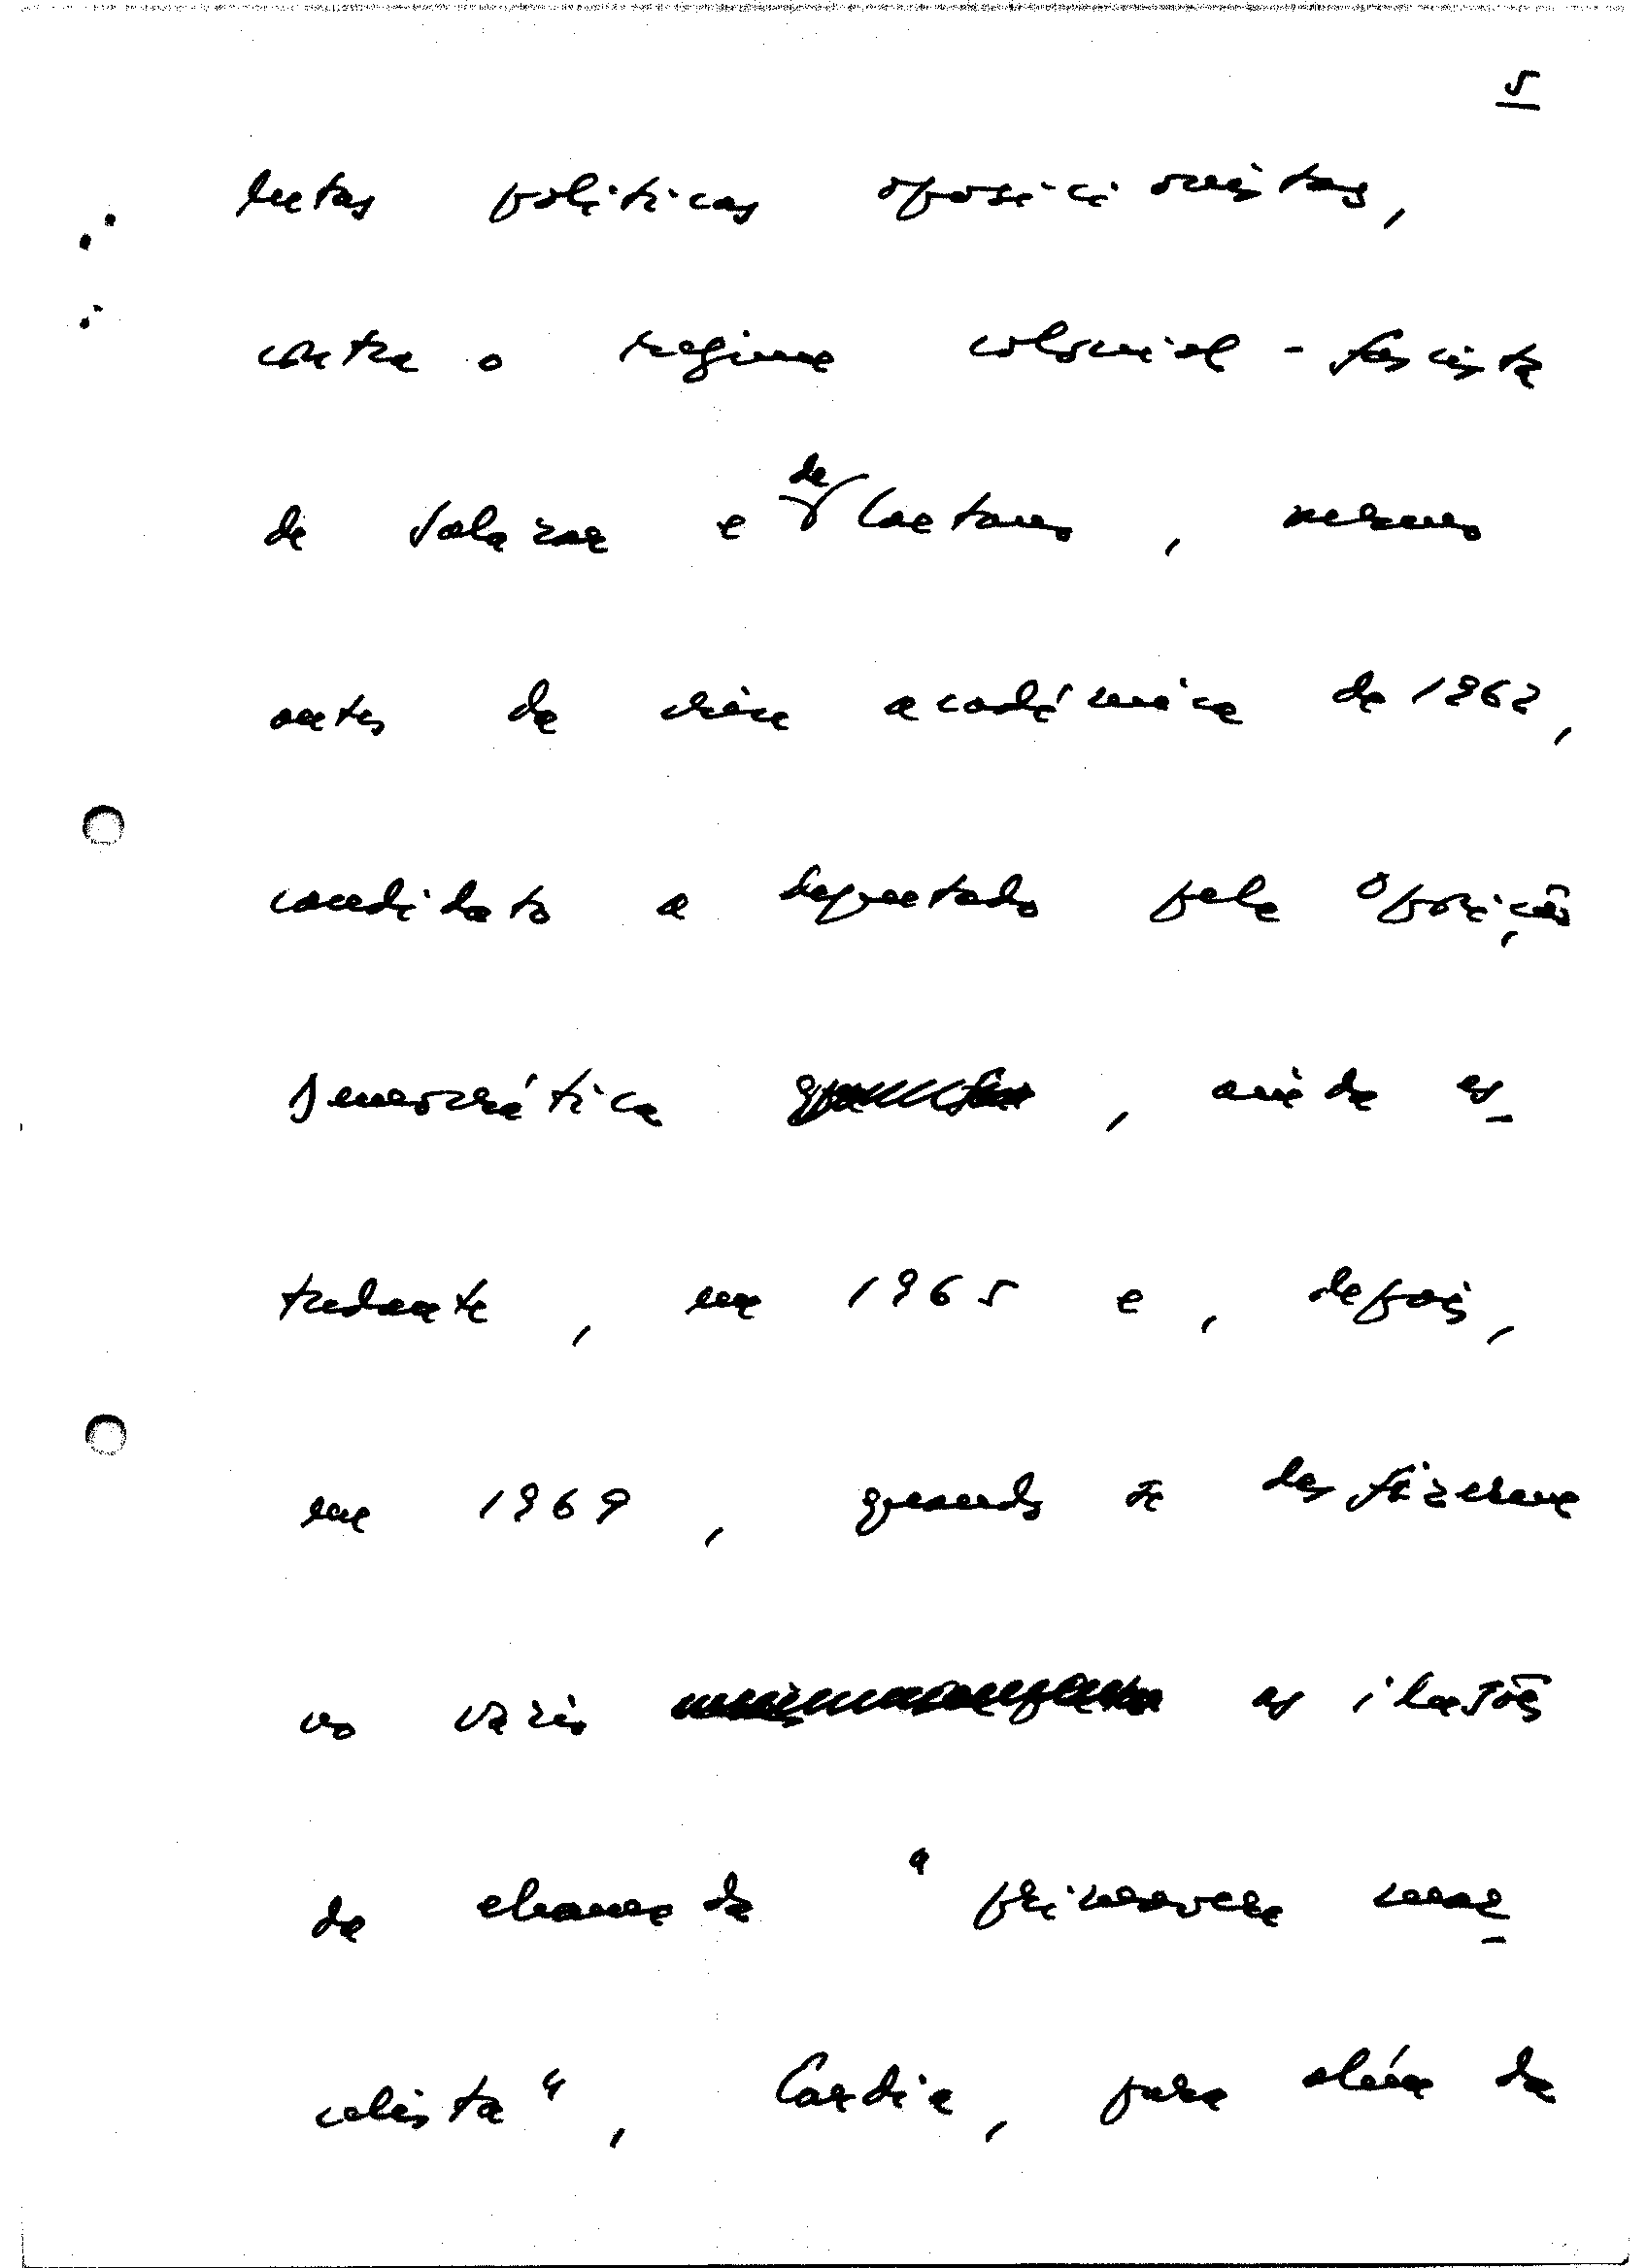 5
lutas políticas oposicionistas,
contra o regime colonial-fascista
de Salazar e de Caetano, mesmo
antes da crise académica de 1962,
candidato a deputado pela Oposição
Democrática, ainda es-
tudante, em 1965 e, depois,
em 1969, quando se desfizeram
no vazio as ilusões
da chamada "primavera mar-
celista", Cardia, para além da